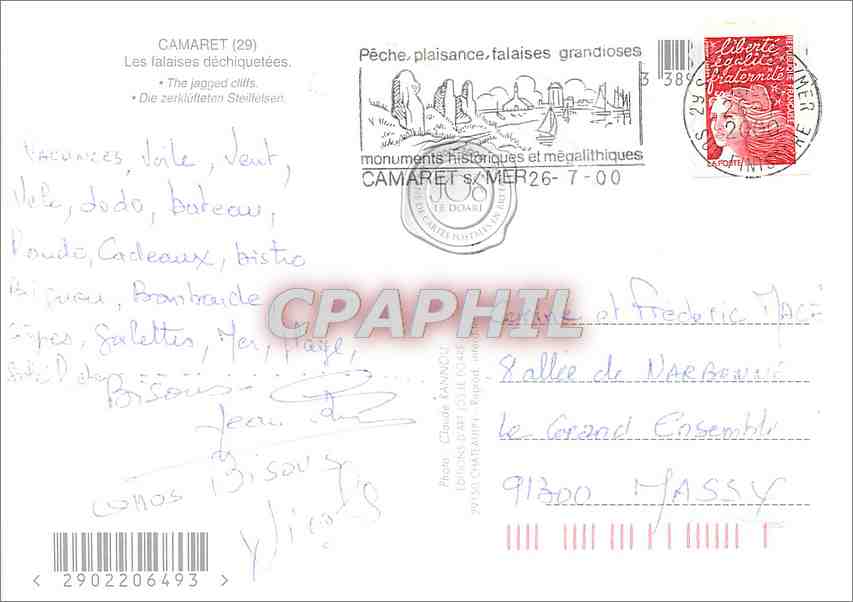 CAMARET (29)
Les falaises déchiquetées.
• The jagged cliffs.
• Die zerklüfteten Steilfelsen.
Pêche, plaisance, falaises grandioses
monuments historiques et mégalithiques
CAMARET s/MER 26-7-00
liberté
égalité
fraternité
RÉPUBLIQUE FRANÇAISE
LA POSTE
JOS
LE DOARÉ
Vacances, Voile, Vent,
Vélo, dodo, bateau,
Rando, Cadeaux, bistro
Bigoudi, Bombarde
Crêpes, Galettes, Mer, Plage,
Bisous
Jean
Bisous
CPAPHIL
et Frédéric MACÉ
8 allée de NARBONNE
Le Grand Ensemble
91300 MASSY
Photo : Claude RANNOU
ÉDITIONS D'ART JOS LE DOARÉ
29150 CHATEAULIN - Reprod. interdite
< 2902206493 >